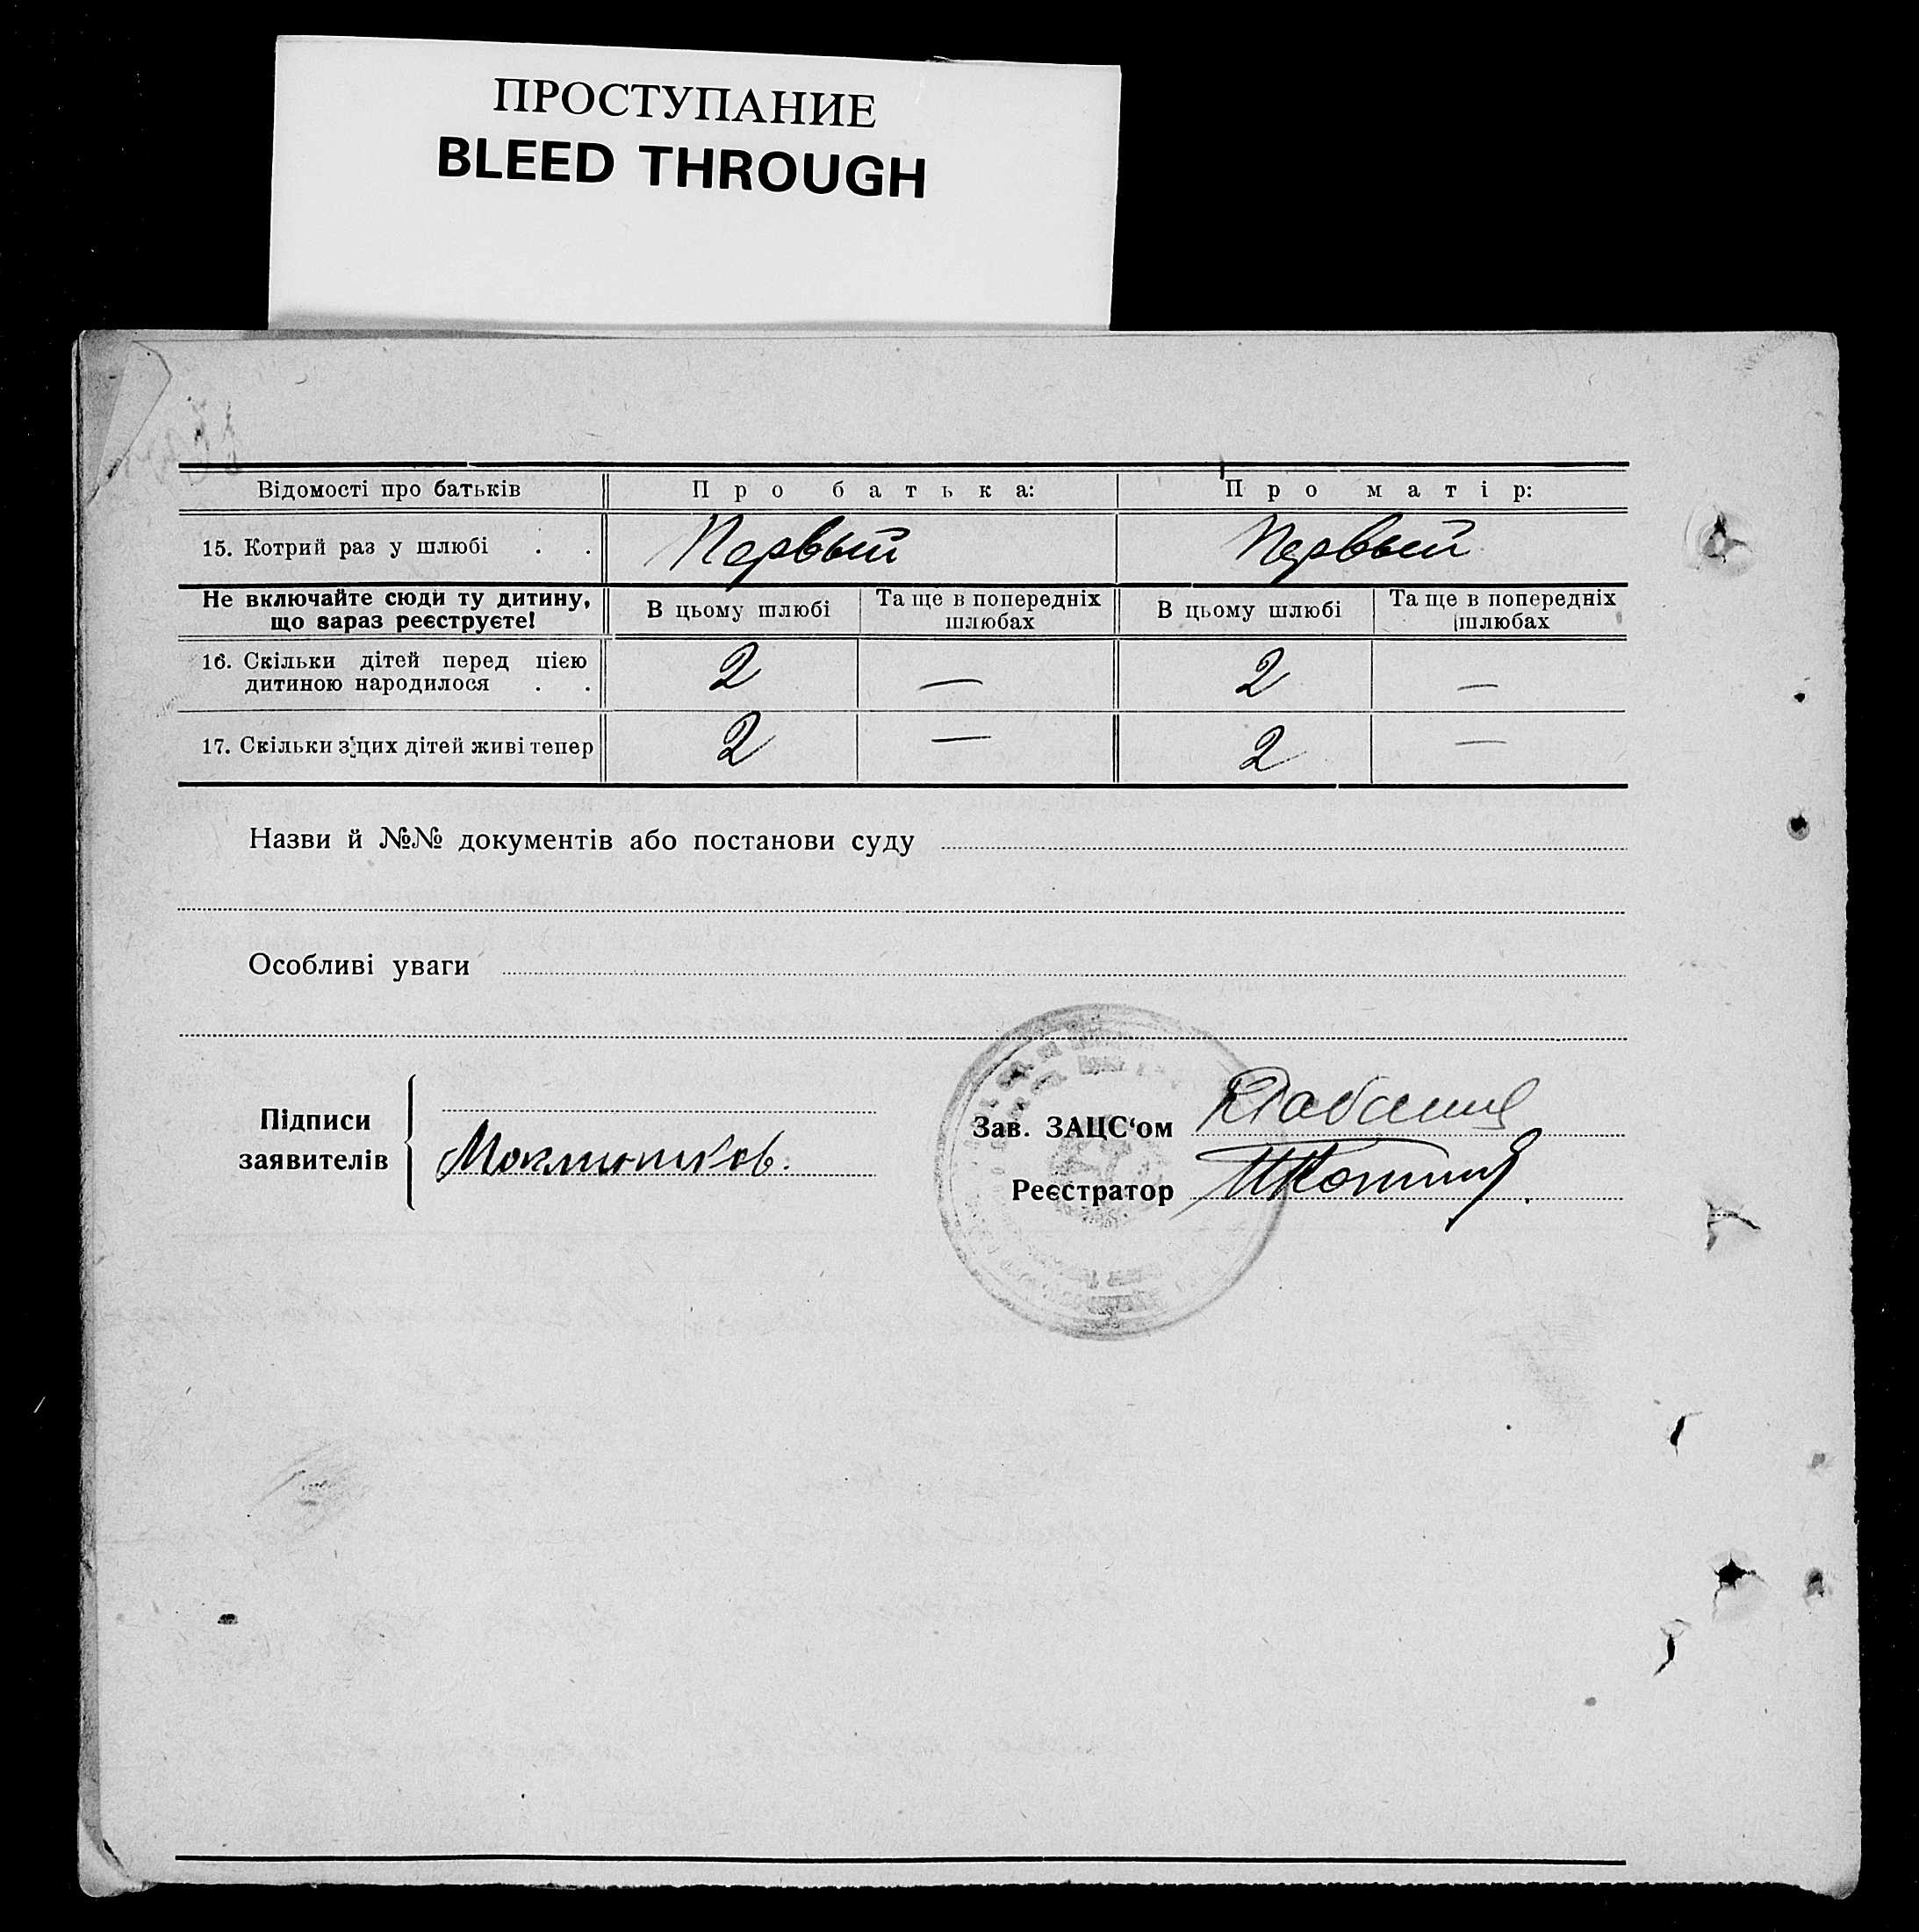 ПРОСТУПАНИЕ
BLEED THROUGH
Відомості про батьків Про батька: Про матір:
15. Котрий раз у шлюбі . . Первый Первый
Не включайте сюди ту дитину, що зараз реєструєте! В цьому шлюбі Та ще в попередніх шлюбах В цьому шлюбі Та ще в попередніх шлюбах
16. Скільки дітей перед цією дитиною народилося . . 2 — 2 —
17. Скільки з цих дітей живі тепер 2 — 2 —
Назви й №№ документів або постанови суду
Особливі уваги
Підписи заявителів
Зав. ЗАЦС‘ом
Реєстратор